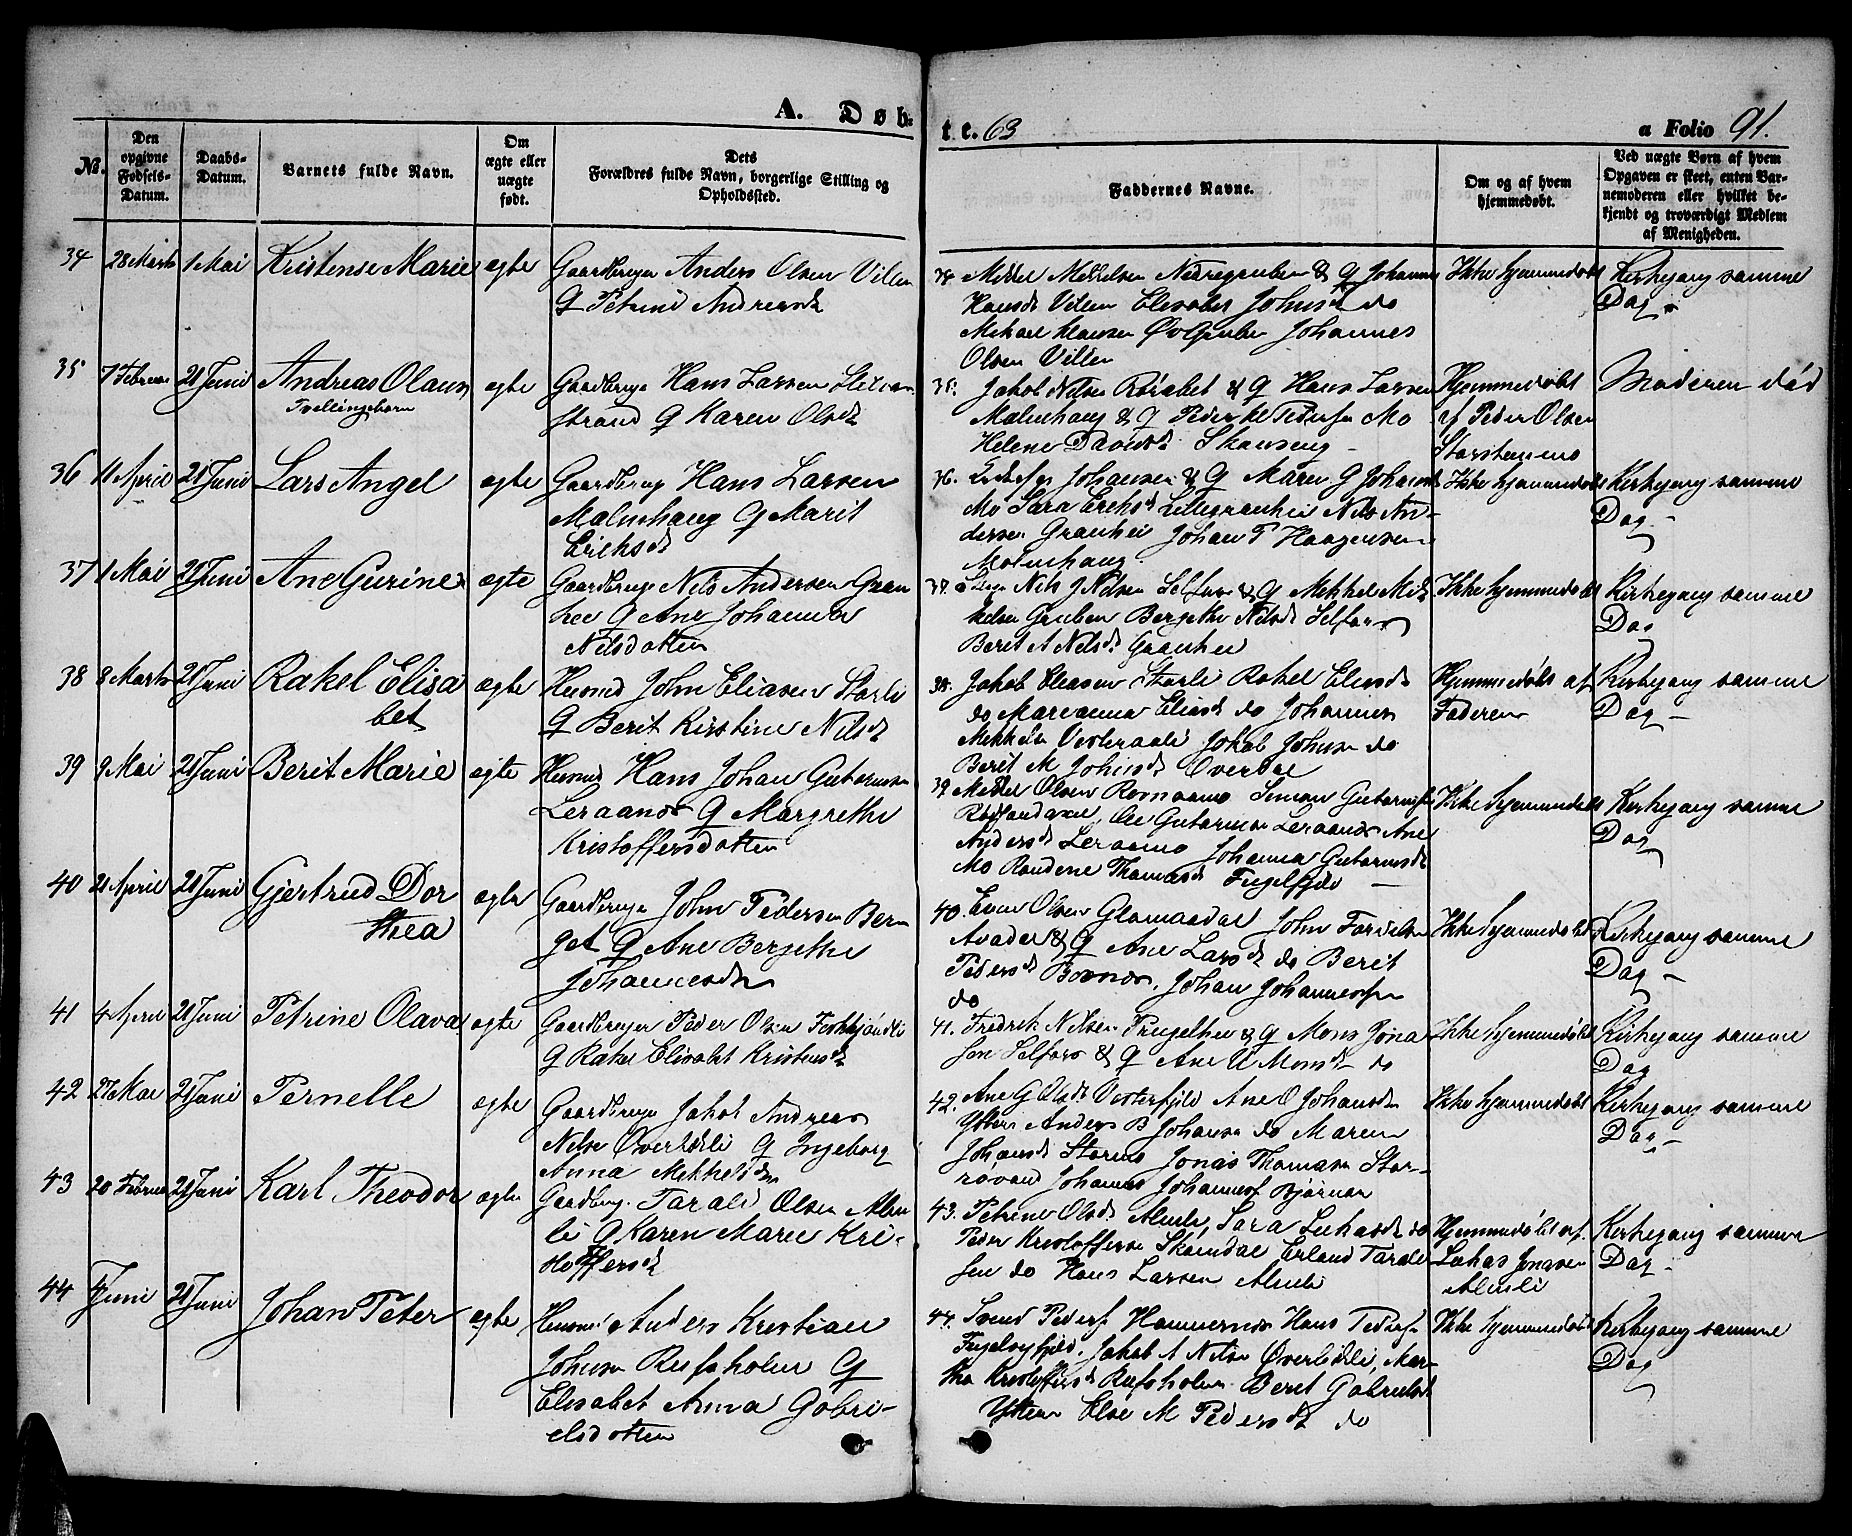 A. Døb-
t e. 63
a Folio 91.
No.
Den opgivne Fødsels-Datum.
Daabs-Datum.
Barnets fulde Navn.
Om ægte eller uægte født.
Dets Forældres fulde Navn, borgerlige Stilling og Opholdssted.
Faddernes Navne.
Om og af hvem hjemmedøbt.
Ved uægte Børn af hvem Opgaven er skeet, enten Barnemoderen eller hvilket bekjendt og troværdigt Medlem af Menigheden.
34 28 Marts 1 Mai Kristense Marie ægte Gaardbruger Anders Olsen Villen
& Petrine Andreasd
34 Mikkel Mikkelsen Nedregruben & & Johanna
Hansd Villen Elisabet Johnsd do
Mikael Klausen Øvgruben Johannes
Olsen Villen
Ikke hjemmedøbt
Kirkegang samme
Dag
35 7 Februar 21 Juni Andreas Olaus ægte Gaardbruger Hans Larsen
Tvellingebarn
strand & Karen Olsd
35. Jakob Nilsen & & Hans Larsen
Malmhaug & & Peder Pedersen Mo
Helene Davidsd
Hjemmedøbt
af Peder Olsen
Storstenmo
Moderen død
36 11 April 21 Juni Lars Angel ægte Gaardbrug Hans Larsen
Malmhaug & Marit
Eriksd
36. Johansen & & Maren & Johansd
Mo Sara Eriksd Lillegranhei Nils An-
dersen Granhei Johan T Haagensen
Malmhaug
Ikke hjemmedøbt
Kirkegang samme
Dag -
37 1 Mai 21 Juni Ane Gurine ægte Gaardbrug Nils Andersen Gran
hei & Ane Johanna
Nilsdatter
37. Nils J Nilsen Selfors & & Mikkel Mik
kelsen Gruben Bergethe Nilsd Selfors
Berit A Nilsd Granhei
Ikke hjemmedøbt
Kirkegang samme
Dag
38 8 Marts 21 Juni Rakel Elisa
bet
ægte Husmd John Eliasen Storli
& Berit Kirstine Nilsd
38. Jakob Eliasen Storli Rakel Eliasd
do Marianna Eliasd do Johannes
Mikkels Vesteraali Jakob Johnsen do
Berit M Johnsd Overdal
Hjemmedøbt af
Faderen
Kirkegang samme
Dag -
39 9 Mai 21 Juni Berit Marie ægte Husmd Hans Johan Gutormsen
Leraanes & Margrethe
Kristoffersdatter
39 Mikkel Olsen Simon Gutormsen
Ole Gutormsen Leraanes Ane
Andersd Leraamo Johanna Gutormsd
Mo Randine Thomasd Fugelfjeld -
Ikke hjemmedøbt
Kirkegang samme
Dag
40 21 April 21 Juni Gjertrud Dor
thea
ægte Gaardbruger John Pedersen Ber
get & Ane Bergethe
Johannesd
40. Even Olsen Glomaadal John
& & Ane Larsd do Berit
Pedersd Johan Johannessen
do
Ikke hjemmedøbt
Kirkegang samme
Dag -
41 4 April 21 Juni Petrine Olava ægte Gaardbruger Peder Olsen
& Rakel Elisabet Kristensd
41. Fredrik Nilsen & & Mons Jona
sen Selfors & & Ane U Monsd do
Ikke hjemmedøbt
Kirkegang samme
Dag
42 27 Mai 21 Juni Pernelle ægte Gaardbruger Jakob Andreas
Nilsen Øverlidli & Ingeborg
Anna Mikkelsd
42. Ane G Olsd Vesterfjeld Ane O Johansd
Ytteren Anders B Johansen do Maren
Johansd Jonas Thomasen Stor-
røvand Johannes Johannesen
Ikke hjemmedøbt
Kirkegang samme
Dag -
43 20 Februar 21 Juni Karl Theodor ægte Gaardbrug. Tarald Olsen Almli
& Karen Marie Kri-
stoffersd
43. Petrine Olsd Almli, Sara Lukasd do
Peder Kristoffersen Skamdal Erland Tarald
sen do Hans Larsen Almli
Hjemmedøbt af
Lukas Jonasen
Almli
Kirkegang samme
Dag -
44 4 Juni 21 Juni Johan Peter ægte Husmd Anders Kristian
Johnsen Rufsholmen &
Elisabet Anna Gabri-
elsdatter
44. Svend Peders Hammernes Hans Peders
Jakob A Nilsen Øverlidli, Mar-
tha Kristoffersd Rufsholmen Berit Gabrielsd
Ytteren Else M Pedersd do
Ikke hjemmedøbt
Kirkegang samme
Dag